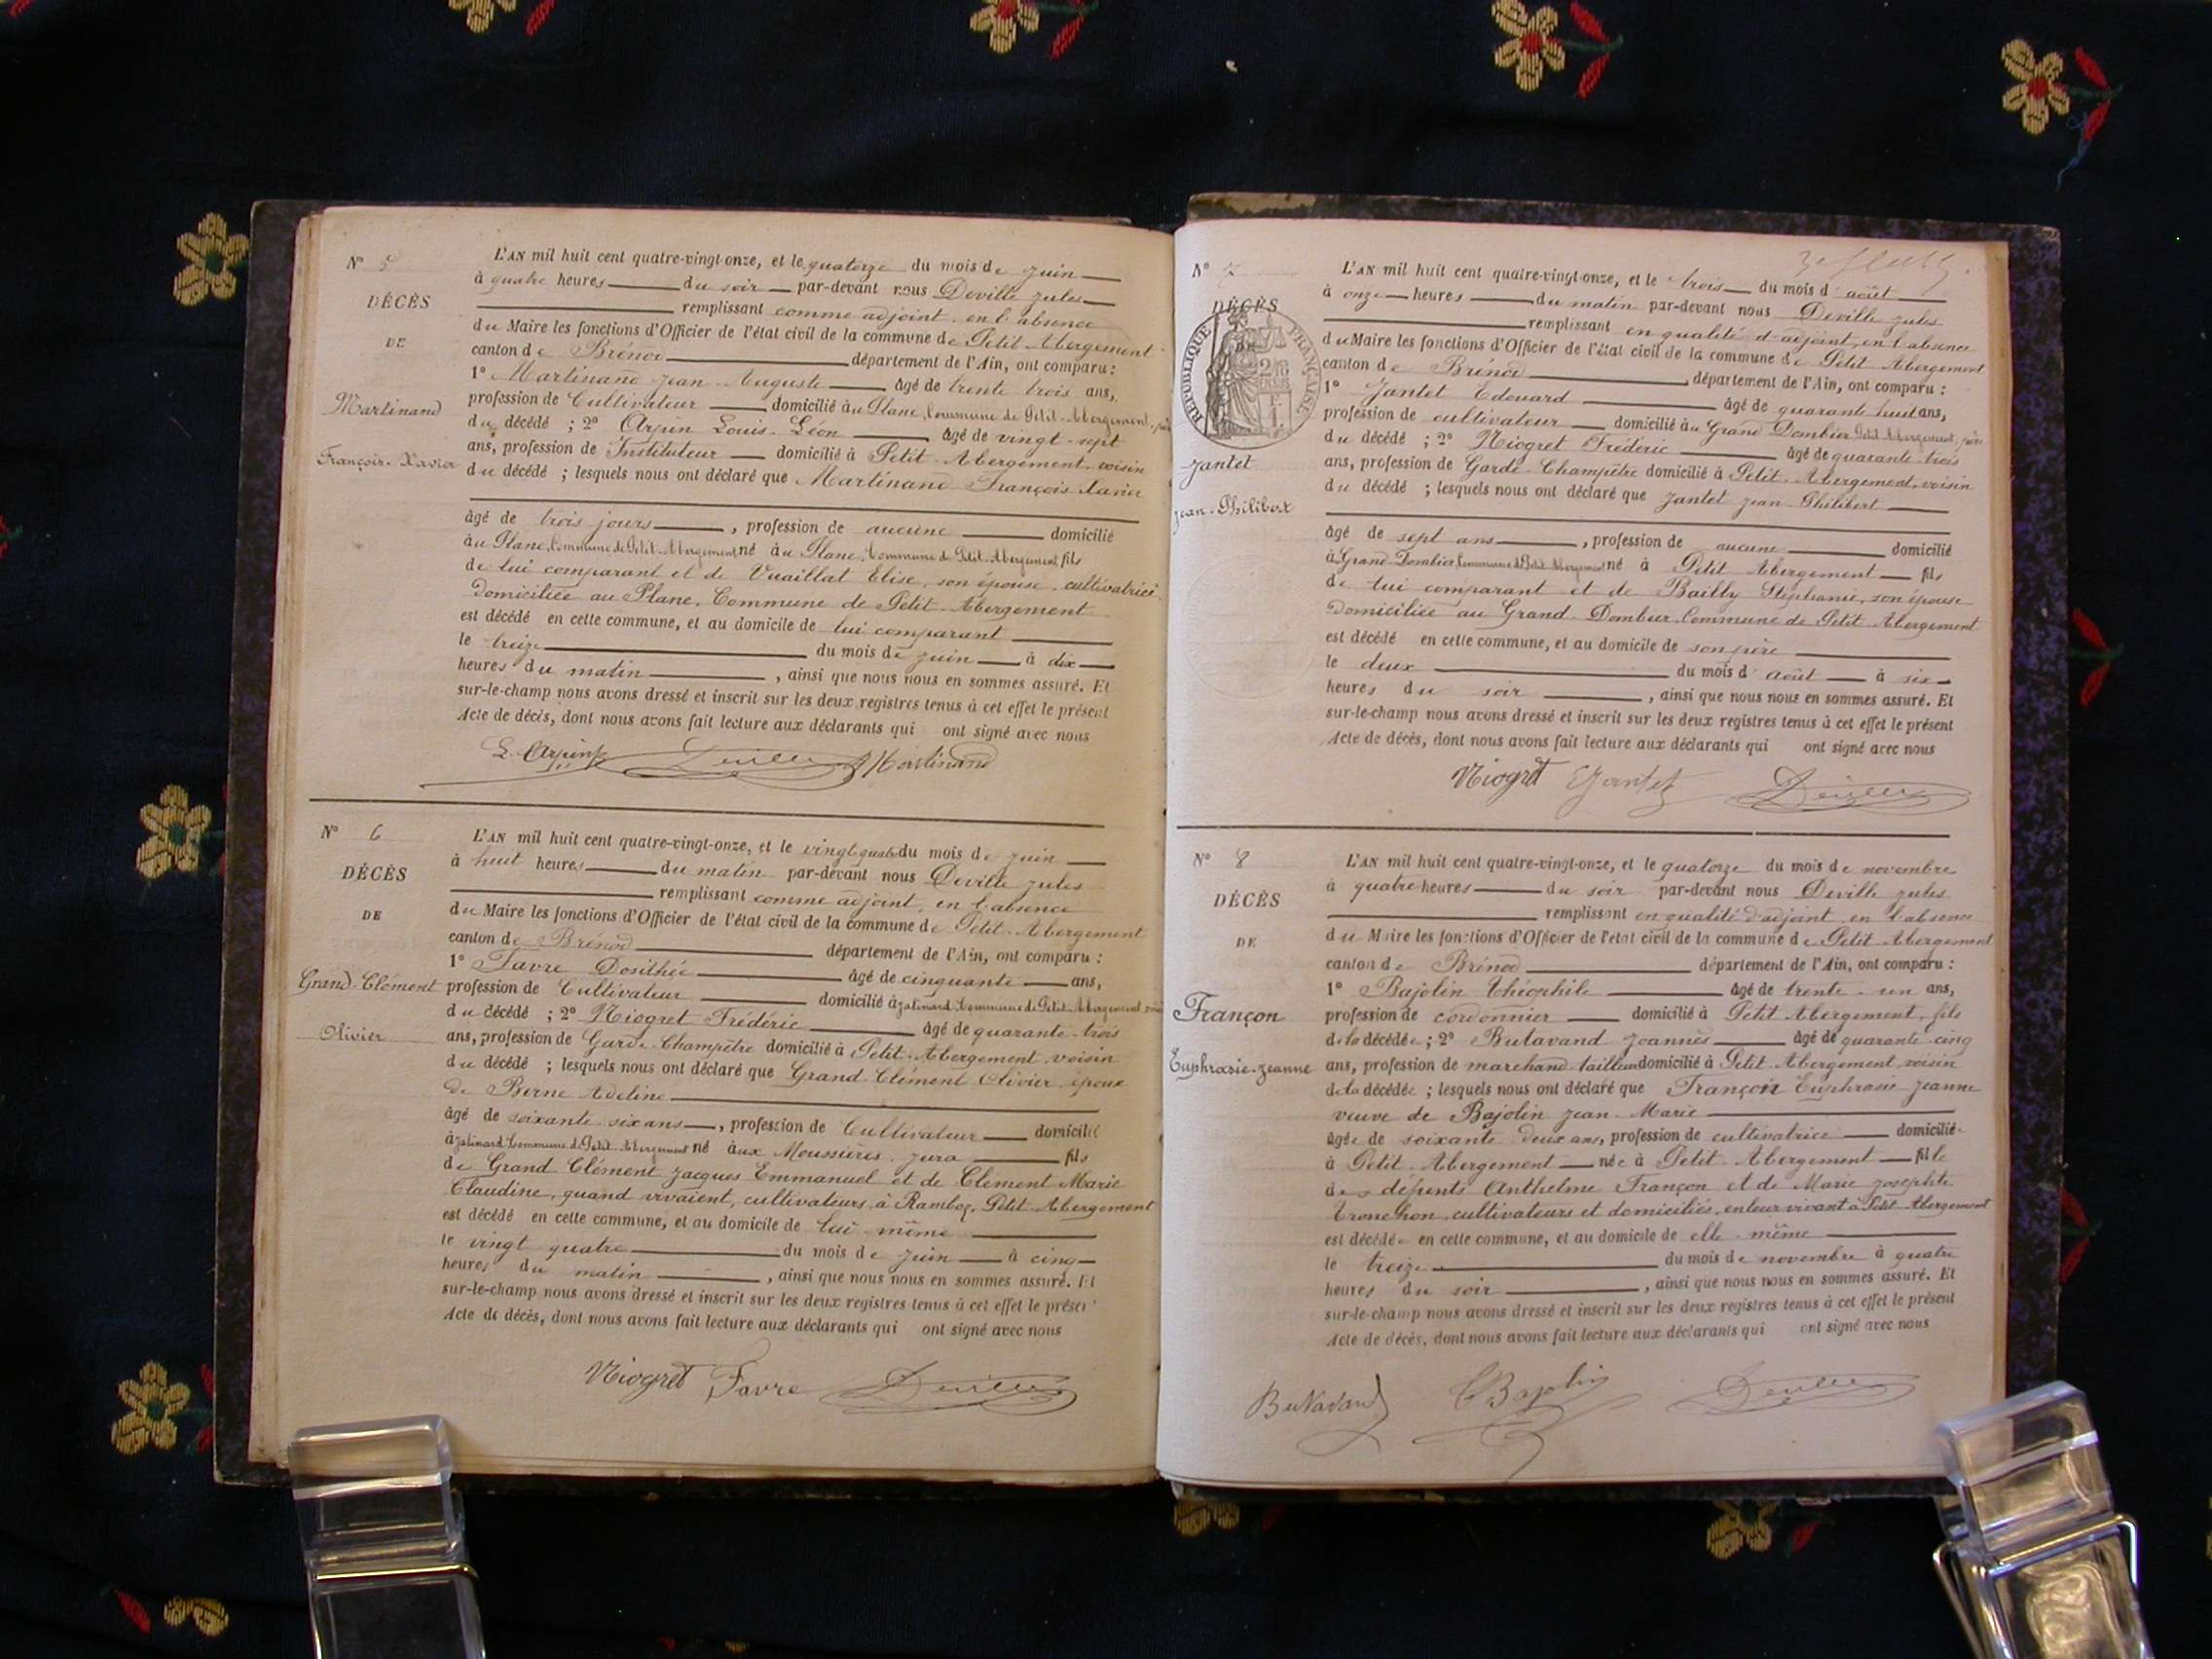 N° 5
DÉCÈS
DE
Martinand
François-Xavier
L'AN mil huit cent quatre-vingt-onze, et le quatorze du mois de juin
à quatre heures du soir par-devant nous Deville Jules
remplissant comme adjoint en l'absence
du Maire les fonctions d'Officier de l'état civil de la commune de Petit-Abergement
canton de Brénod département de l'Ain, ont comparu :
1° Martinand Jean-Auguste âgé de trente trois ans,
profession de Cultivateur domicilié au Plane, Commune de Petit-Abergement, père
du décédé ; 2° Arpin Louis-Léon âgé de vingt-sept
ans, profession de Instituteur domicilié à Petit-Abergement, voisin
du décédé ; lesquels nous ont déclaré que Martinand François Xavier
âgé de trois jours, profession de aucune domicilié
au Plane, Commune de Petit-Abergement né au Plane, Commune de Petit-Abergement fils
de lui comparant et de Vuaillat Elise, son épouse, cultivatrice
domiciliée au Plane, Commune de Petit-Abergement
est décédé en cette commune, et au domicile de lui comparant
le treize du mois de juin à dix
heures du matin, ainsi que nous nous en sommes assuré. Et
sur-le-champ nous avons dressé et inscrit sur les deux registres tenus à cet effet le présent
Acte de décès, dont nous avons fait lecture aux déclarants qui ont signé avec nous
L. Arpin Deville Martinand
N° 6
DÉCÈS
DE
Grand-Clément
Olivier
L'AN mil huit cent quatre-vingt-onze, et le vingt-quatre du mois de juin
à huit heures du matin par-devant nous Deville Jules
remplissant comme adjoint, en l'absence
du Maire les fonctions d'Officier de l'état civil de la commune de Petit-Abergement
canton de Brénod département de l'Ain, ont comparu :
1° Favre Dosithée âgé de cinquante ans,
profession de Cultivateur domicilié à Jalinard, Commune de Petit-Abergement, voisin
du décédé ; 2° Niogret Frédéric âgé de quarante-trois
ans, profession de Garde-Champêtre domicilié à Petit-Abergement voisin
du décédé ; lesquels nous ont déclaré que Grand-Clément Olivier, époux
de Berne Adeline
âgé de soixante six ans, profession de Cultivateur domicilié
à Jalinard, Commune de Petit-Abergement né aux Moussières, Jura fils
de Grand-Clément Jacques Emmanuel et de Clément Marie
Claudine, quand vivaient, cultivateurs, à Petit-Abergement
est décédé en cette commune, et au domicile de lui-même
le vingt quatre du mois de juin à cinq
heures du matin, ainsi que nous nous en sommes assuré. Et
sur-le-champ nous avons dressé et inscrit sur les deux registres tenus à cet effet le présent
Acte de décès, dont nous avons fait lecture aux déclarants qui ont signé avec nous
Niogret Favre Deville
N° 7
DÉCÈS
RÉPUBLIQUE FRANÇAISE
Jantet
Jean-Philibert
L'AN mil huit cent quatre-vingt-onze, et le trois du mois d'août
à onze heures du matin par-devant nous Deville Jules
remplissant en qualité d'adjoint, en l'absence
du Maire les fonctions d'Officier de l'état civil de la commune de Petit Abergement
canton de Brénod, département de l'Ain, ont comparu :
1° Jantet Edouard âgé de quarante huit ans,
profession de cultivateur domicilié au Grand Dombier Petit-Abergement, père
du décédé ; 2° Niogret Frédéric âgé de quarante-trois
ans, profession de Garde-Champêtre domicilié à Petit-Abergement, voisin
du décédé ; lesquels nous ont déclaré que Jantet Jean-Philibert
âgé de sept ans, profession de aucune domicilié
à Grand-Dombier, Commune de Petit-Abergement né à Petit Abergement fils
de lui comparant et de Bailly Stéphanie, son épouse
domiciliée au Grand-Dombier, Commune de Petit-Abergement
est décédé en cette commune, et au domicile de son père
le deux du mois d'août à six
heures du soir, ainsi que nous nous en sommes assuré. Et
sur-le-champ nous avons dressé et inscrit sur les deux registres tenus à cet effet le présent
Acte de décès, dont nous avons fait lecture aux déclarants qui ont signé avec nous
Niogret E Jantet Deville
N° 8
DÉCÈS
DE
Françon
Euphrasie-Jeanne
L'AN mil huit cent quatre-vingt-onze, et le quatorze du mois de novembre
à quatre heures du soir par-devant nous Deville Jules
remplissant en qualité d'adjoint, en l'absence
du Maire les fonctions d'Officier de l'état civil de la commune de Petit-Abergement
canton de Brénod département de l'Ain, ont comparu :
1° Bajolin Théophile âgé de trente-un ans,
profession de cordonnier domicilié à Petit Abergement, fils
de la décédée ; 2° Butavand Joannès âgé de quarante-cinq
ans, profession de marchand-tailleur domicilié à Petit-Abergement, voisin
de la décédée ; lesquels nous ont déclaré que Françon Euphrasie Jeanne
veuve de Bajolin Jean-Marie
âgée de soixante-deux ans, profession de cultivatrice domiciliée
à Petit-Abergement née à Petit-Abergement fille
des défunts Anthelme Françon et de Marie Josephte
Tronchon, cultivateurs et domiciliés, en leur vivant à Petit-Abergement
est décédée en cette commune, et au domicile de elle-même
le treize du mois de novembre à quatre
heures du soir, ainsi que nous nous en sommes assuré. Et
sur-le-champ nous avons dressé et inscrit sur les deux registres tenus à cet effet le présent
Acte de décès, dont nous avons fait lecture aux déclarants qui ont signé avec nous
Butavand Bajolin Deville